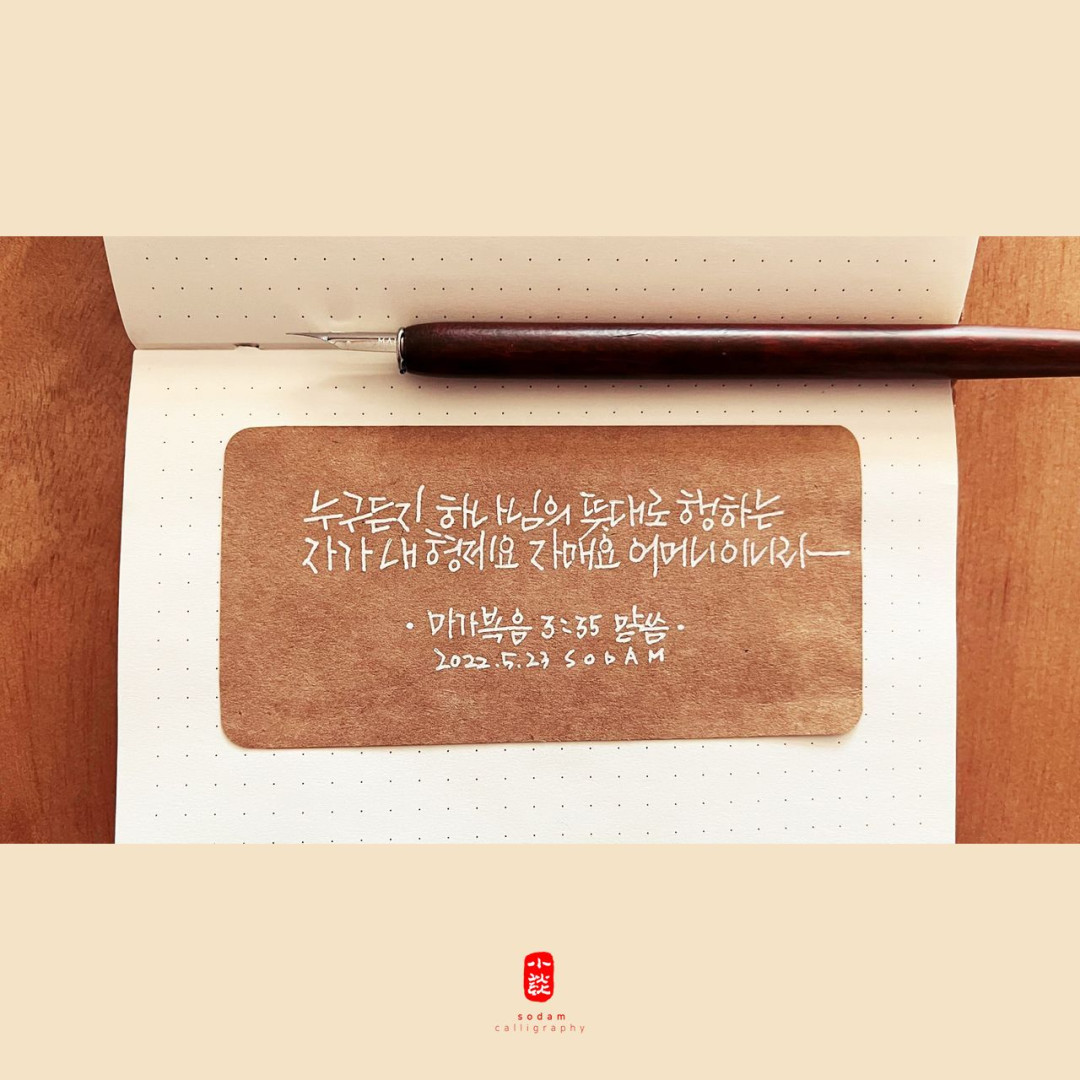 누구든지 하나님의 뜻대로 행하는
자가 내 형제요 자매요 어머니이니라
· 마가복음 3:35 말씀 ·
2022.5.23 SODAM
小談
sodam
calligraphy